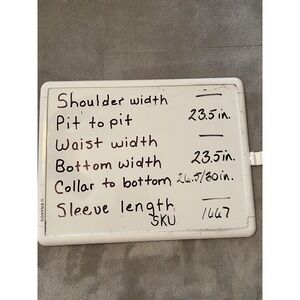 Shoulder width —
Pit to pit 23.5in.
Waist width —
Bottom width 23.5in.
Collar to bottom 26.5/30in.
Sleeve length —
SKU 1667